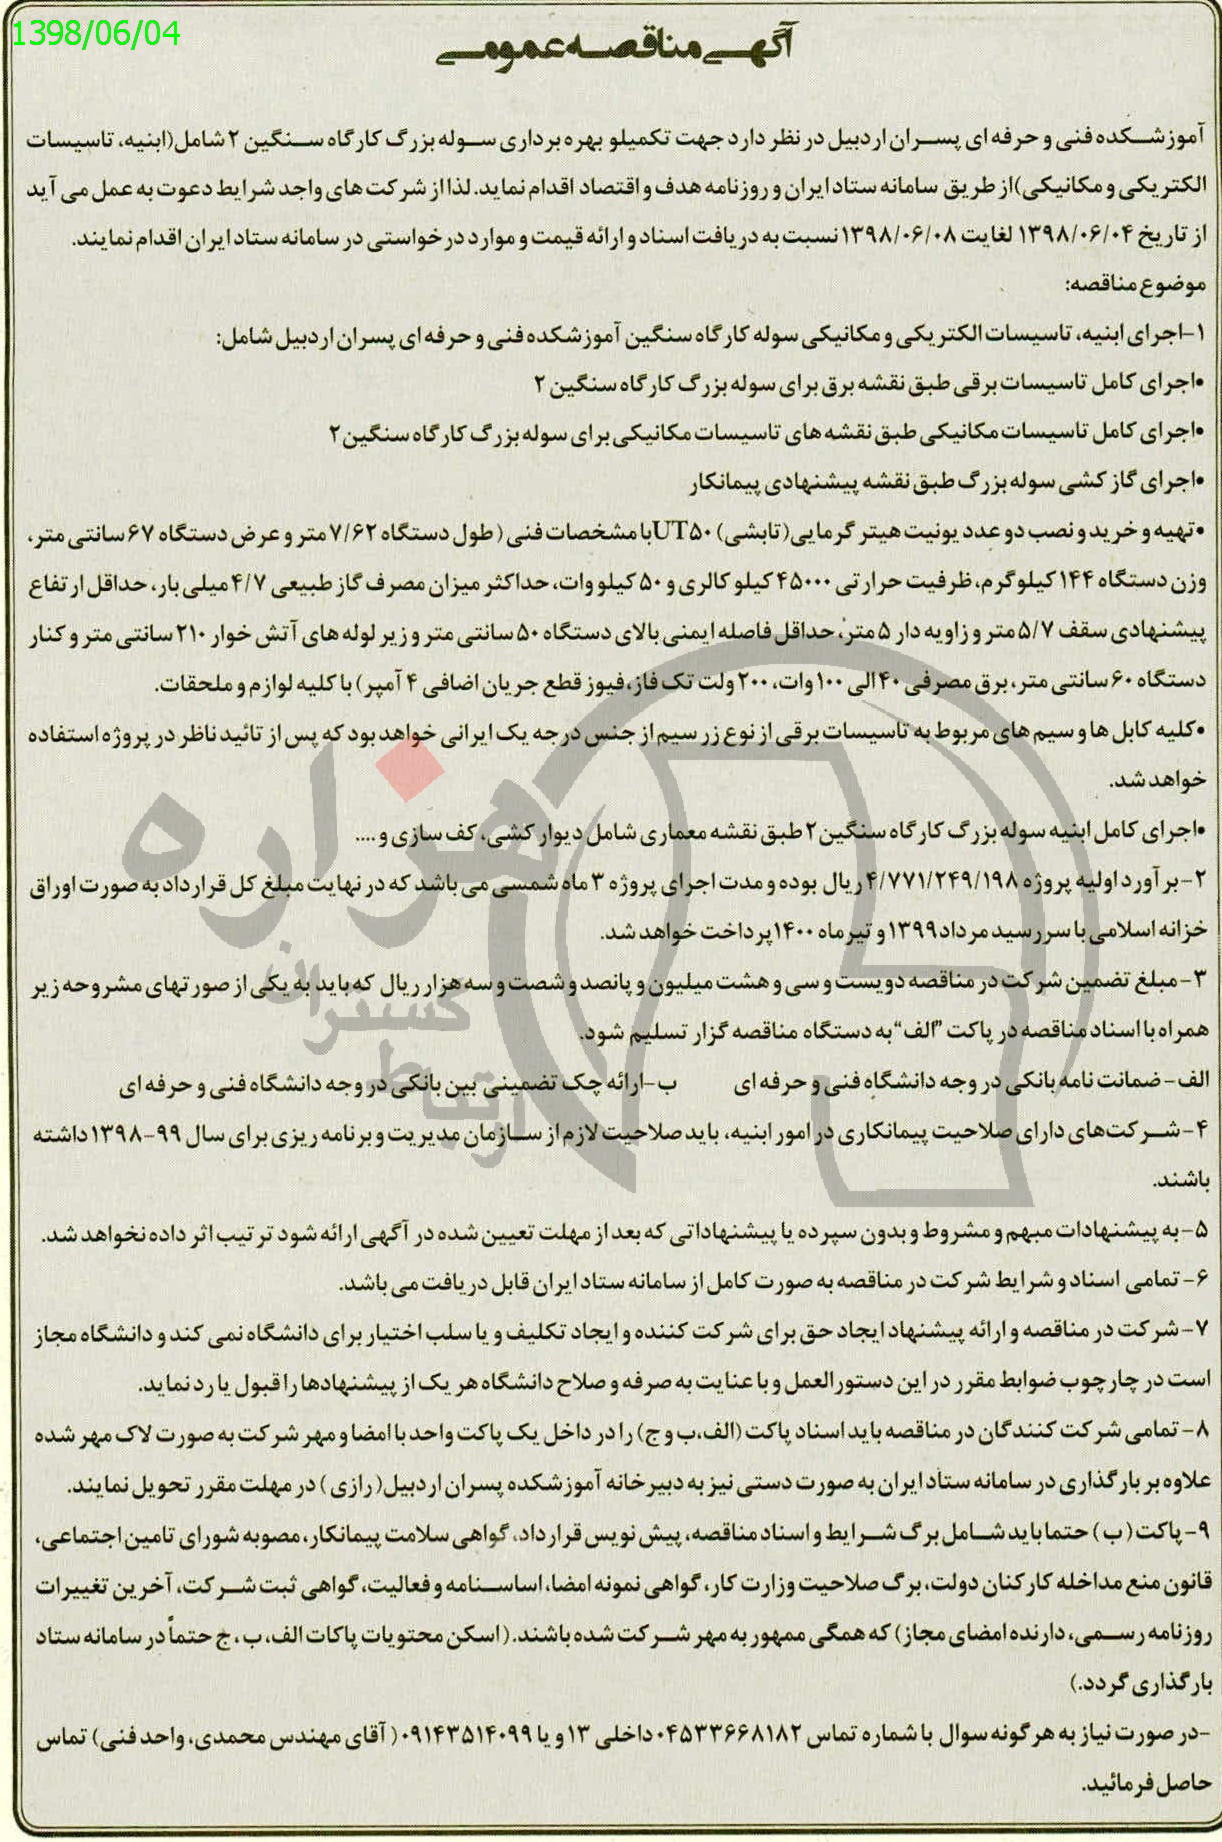 1398/06/04
آگهی مناقصه عمومی
آموزشکده فنی و حرفه ای پسران اردبیل در نظر دارد جهت تکمیلو بهره برداری سوله بزرگ کارگاه سنگین ۲ شامل(ابنیه، تاسیسات
الکتریکی و مکانیکی)از طریق سامانه ستاد ایران و روزنامه هدف و اقتصاد اقدام نماید. لذا از شرکت های واجد شرایط دعوت به عمل می آید
از تاریخ ۱۳۹۸/۰۶/۰۴ لغایت ۱۳۹۸/۰۶/۰۸ نسبت به دریافت اسناد و ارائه قیمت و موارد درخواستی در سامانه ستاد ایران اقدام نمایند.
موضوع مناقصه:
۱-اجرای ابنیه، تاسیسات الکتریکی و مکانیکی سوله کارگاه سنگین آموزشکده فنی و حرفه ای پسران اردبیل شامل:
•اجرای کامل تاسیسات برقی طبق نقشه برق برای سوله بزرگ کارگاه سنگین ۲
•اجرای کامل تاسیسات مکانیکی طبق نقشه های تاسیسات مکانیکی برای سوله بزرگ کارگاه سنگین۲
•اجرای گازکشی سوله بزرگ طبق نقشه پیشنهادی پیمانکار
•تهیه و خرید و نصب دو عدد یونیت هیتر گرمایی(تابشی) UT۵۰با مشخصات فنی ( طول دستگاه ۷/۶۲ متر و عرض دستگاه ۶۷ سانتی متر،
وزن دستگاه ۱۴۴ کیلوگرم، ظرفیت حرارتی ۴۵۰۰۰ کیلو کالری و ۵۰ کیلو وات، حداکثر میزان مصرف گاز طبیعی ۴/۷ میلی بار، حداقل ارتفاع
پیشنهادی سقف ۵/۷ متر و زاویه دار ۵ متر، حداقل فاصله ایمنی بالای دستگاه ۵۰ سانتی متر و زیر لوله های آتش خوار ۲۱۰ سانتی متر و کنار
دستگاه ۶۰ سانتی متر، برق مصرفی ۴۰ الی ۱۰۰ وات، ۲۰۰ ولت تک فاز،فیوز قطع جریان اضافی ۴ آمپر) با کلیه لوازم و ملحقات.
•کلیه کابل ها و سیم های مربوط به تاسیسات برقی از نوع زر سیم از جنس درجه یک ایرانی خواهد بود که پس از تائید ناظر در پروژه استفاده
خواهد شد.
•اجرای کامل ابنیه سوله بزرگ کارگاه سنگین۲ طبق نقشه معماری شامل دیوار کشی، کف سازی و ....
۲-بر آورد اولیه پروژه ۴/۷۷۱/۲۴۹/۱۹۸ ریال بوده و مدت اجرای پروژه ۳ ماه شمسی می باشد که در نهایت مبلغ کل قرارداد به صورت اوراق
خزانه اسلامی با سررسید مرداد۱۳۹۹ و تیرماه ۱۴۰۰پرداخت خواهد شد.
۳- مبلغ تضمین شرکت در مناقصه دویست و سی و هشت میلیون و پانصد و شصت و سه هزار ریال که باید به یکی از صورتهای مشروحه زیر
همراه با اسناد مناقصه در پاکت "الف" به دستگاه مناقصه گزار تسلیم شود.
الف- ضمانت نامه بانکی در وجه دانشگاه فنی و حرفه ای ب-ارائه چک تضمینی بین بانکی در وجه دانشگاه فنی و حرفه ای
۴-شرکت‌های دارای صلاحیت پیمانکاری در امور ابنیه، باید صلاحیت لازم از سازمان مدیریت و برنامه ریزی برای سال ۹۹-۱۳۹۸ داشته
باشند.
۵-به پیشنهادات مبهم و مشروط و بدون سپرده یا پیشنهاداتی که بعد از مهلت تعیین شده در آگهی ارائه شود ترتیب اثر داده نخواهد شد.
۶- تمامی اسناد و شرایط شرکت در مناقصه به صورت کامل از سامانه ستاد ایران قابل دریافت می باشد.
۷-شرکت در مناقصه و ارائه پیشنهاد ایجاد حق برای شرکت کننده و ایجاد تکلیف و یا سلب اختیار برای دانشگاه نمی کند و دانشگاه مجاز
است در چارچوب ضوابط مقرر در این دستورالعمل و با عنایت به صرفه و صلاح دانشگاه هر یک از پیشنهادها را قبول یا رد نماید.
۸- تمامی شرکت کنندگان در مناقصه باید اسناد پاکت (الف،ب و ج) را در داخل یک پاکت واحد با امضا و مهر شرکت به صورت لاک مهر شده
علاوه بر بارگذاری در سامانه ستاد ایران به صورت دستی نیز به دبیرخانه آموزشکده پسران اردبیل( رازی ) در مهلت مقرر تحویل نمایند.
۹- پاکت ( ب ) حتما باید شامل برگ شرایط و اسناد مناقصه، پیش نویس قرارداد، گواهی سلامت پیمانکار، مصوبه شورای تامین اجتماعی،
قانون منع مداخله کارکنان دولت، برگ صلاحیت وزارت کار، گواهی نمونه امضا، اساسنامه و فعالیت، گواهی ثبت شرکت، آخرین تغییرات
روزنامه رسمی، دارنده امضای مجاز) که همگی ممهور به مهر شرکت شده باشند.(اسکن محتویات پاکات الف، ب، ج حتماً در سامانه ستاد
بارگذاری گردد.)
-در صورت نیاز به هرگونه سوال با شماره تماس ۰۴۵۳۳۶۶۸۱۸۲ داخلی ۱۳ و یا ۰۹۱۴۳۵۱۴۰۹۹ ( آقای مهندس محمدی، واحد فنی) تماس
حاصل فرمائید.
هزاره
ارتباط گستران